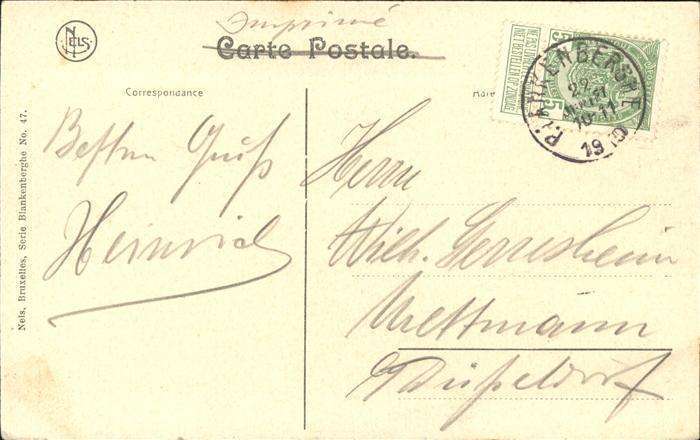 Imprimé
Carte Postale.
NELS
Correspondance
Nels, Bruxelles, Serie Blankenberghe No. 47.
Besten Gruß
Heinrich
Herrn
Wilh. Gerresheim
Mettmann
b/Düsseldorf
BLANKENBERGHE
29
10-11
19
5
NE PAS LIVRER LE DIMANCHE
NIET BESTELLEN OP ZONDAG